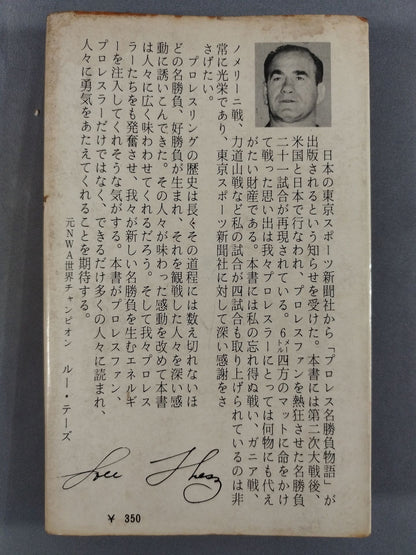 日本の東京スポーツ新聞社から「プロレス名勝負物語」が
出版されるという知らせを受けた。本書には第二次大戦後、
米国と日本で行なわれ、プロレスファンを熱狂させた名勝負
二十一試合が再現されている。6メートル四方のマットに命をかけ
て戦った思い出は我々プロレスラーにとっては何物にも代え
がたい財産である。本書には私の忘れ得ぬ戦い、ガニア戦、
ノメリーニ戦、力道山戦など私の試合が四試合も取り上げられているのは非
常に光栄であり、東京スポーツ新聞社に対して深い感謝をさ
さげたい。
プロレスリングの歴史は長く、その道程には数え切れないほ
どの名勝負、好勝負が生まれ、それを観戦した人々を深い感
動に誘いこんできた。その人々が味わった感動を改めて本書
は人々に広く味わわせてくれるだろう。そして我々プロレス
ラーたちをも発奮させ、我々が新しい名勝負を生むエネルギ
ーを注入してくれそうな気がする。本書がプロレスファン、
プロレスラーだけではなく、できるだけ多くの人々に読まれ、
人々に勇気をあたえてくれることを期待する。
元NWA世界チャンピオン ルー・テーズ
Lou Thesz
￥ 350